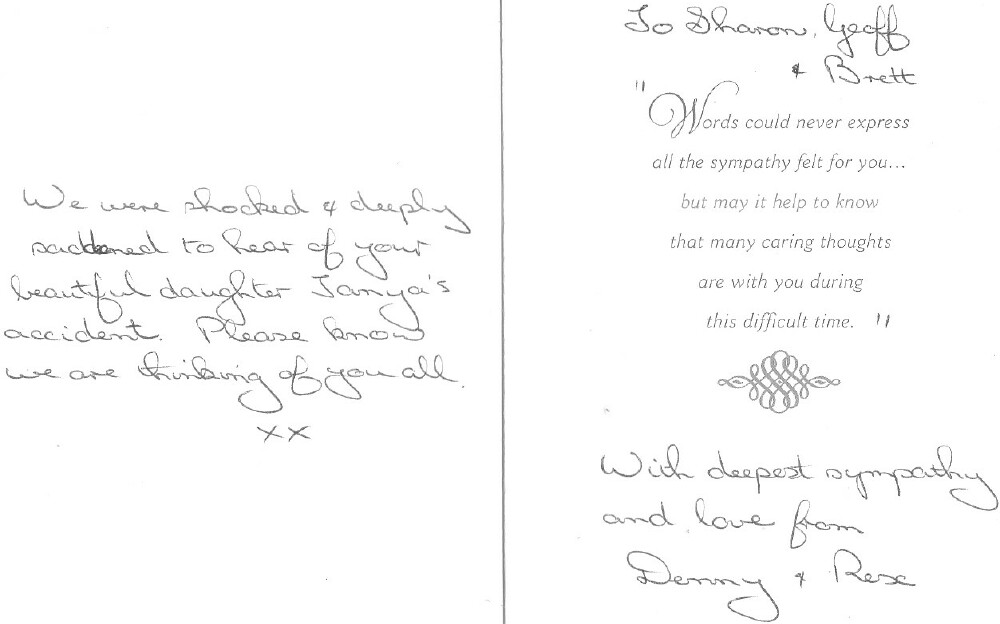 We were shocked & deeply
saddened to hear of your
beautiful daughter Tanya's
accident. Please know
we are thinking of you all.
xx
To Sharon, Geoff
& Brett
"Words could never express
all the sympathy felt for you...
but may it help to know
that many caring thoughts
are with you during
this difficult time. "
With deepest sympathy
and love from
Denny & Rose